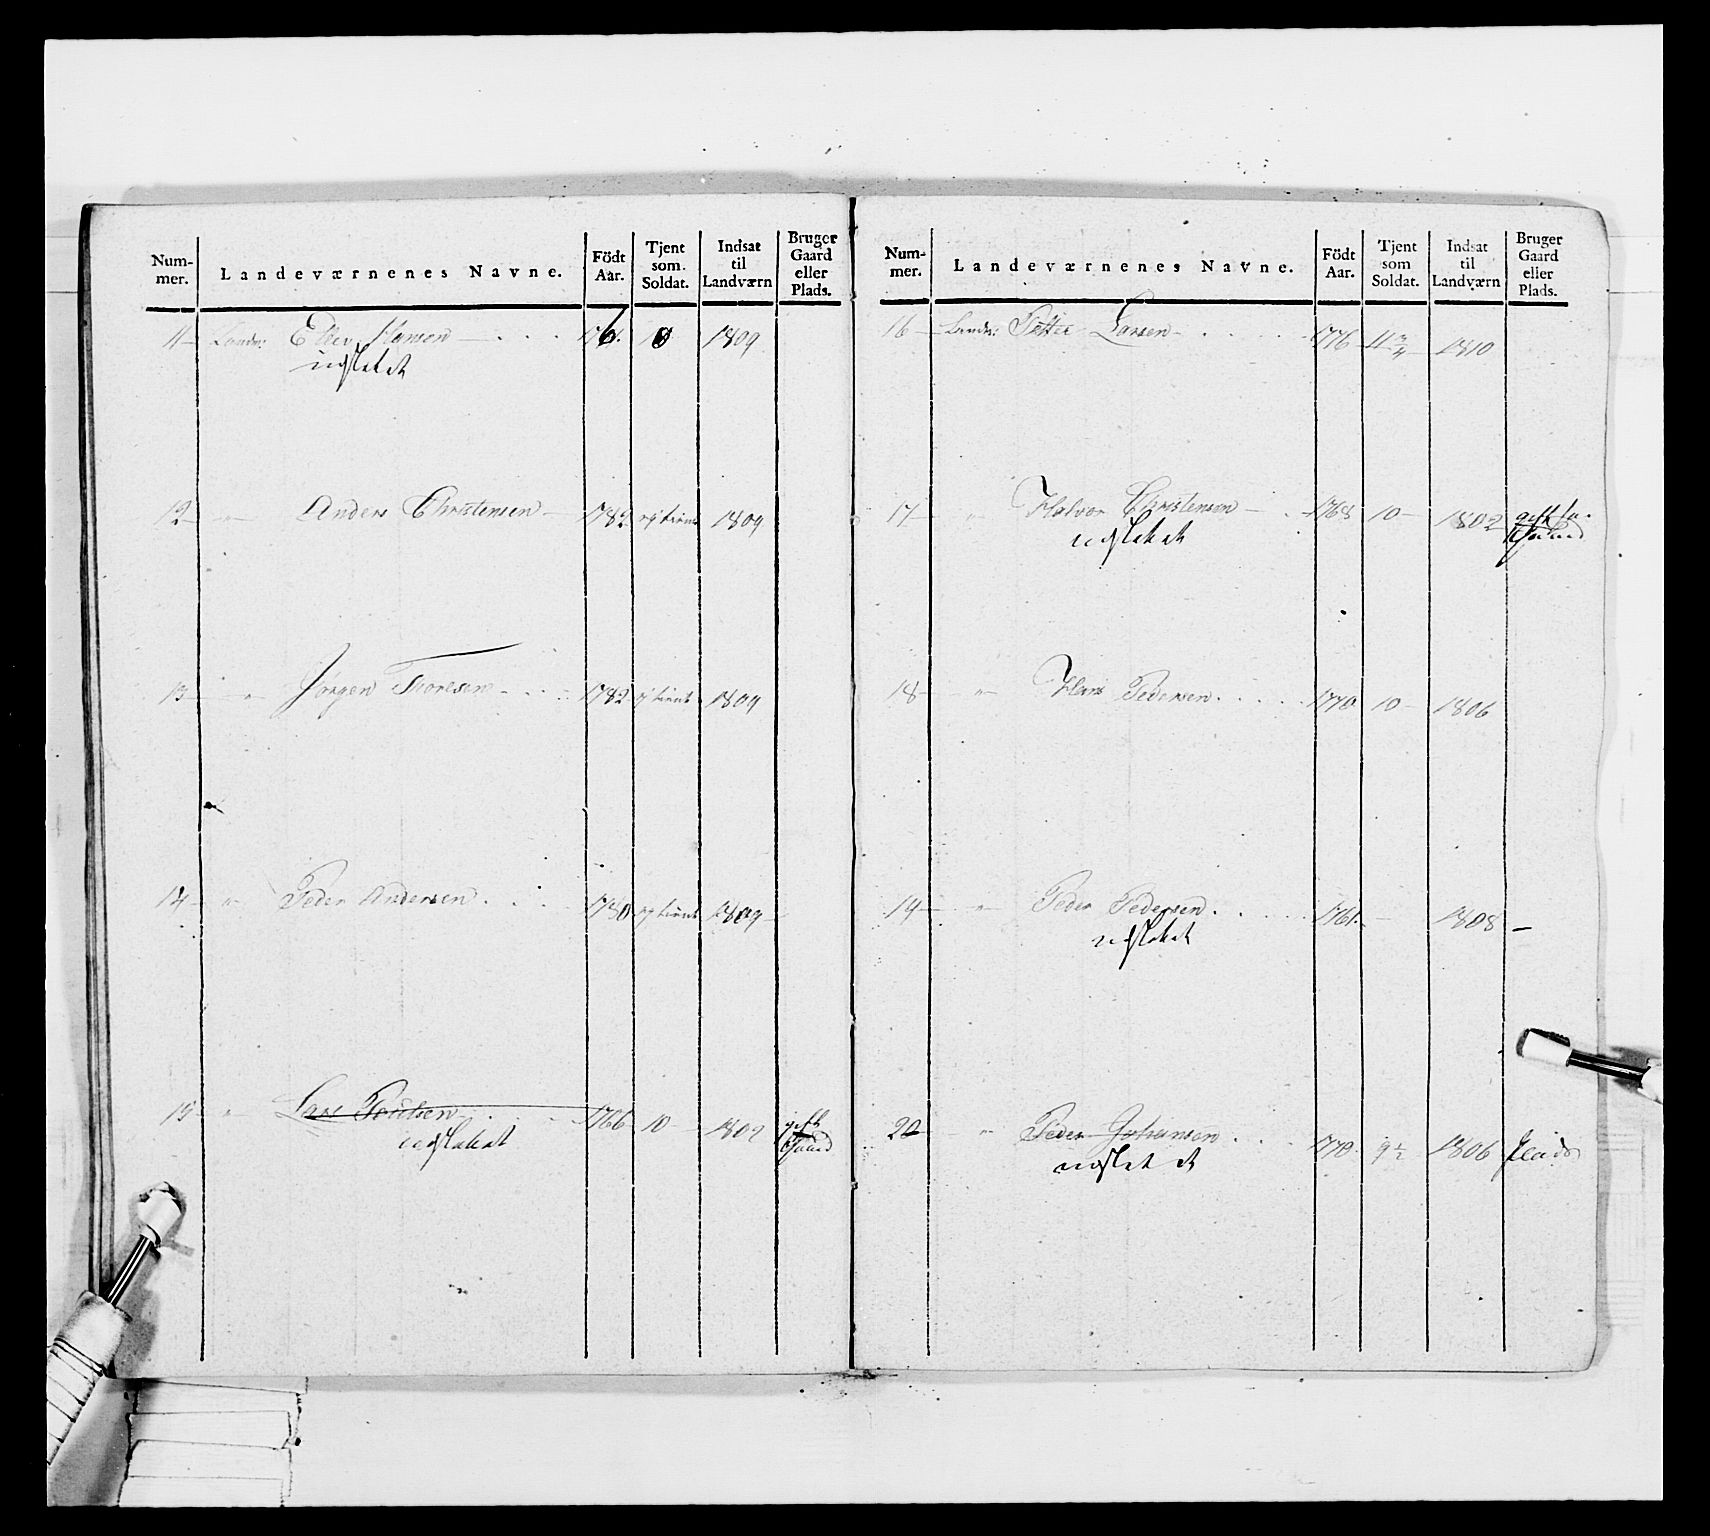 Num-
mer.
Landeværnenes Navne.
Födt
Aar.
Tjent
som
Soldat.
Indsat
til
Landværn
Bruger
Gaard
eller
Plads.
11 Landv: Ellev Hansen 1761. 1809
udslettet
12 " Anders Christensen 1782 ej tient 1809
13 " Jørgen Thoresen 1782 ej tient 1809
14 " Peder Andersen 1780 ej tient 1809
15 " Lars Poulsen 1766 10 1802
udslettet
Num-
mer.
Landeværnenes Navne.
Födt
Aar.
Tjent
som
Soldat.
Indsat
til
Landværn
Bruger
Gaard
eller
Plads.
16 Landv: Petter Larsen 1776 11 3/4 1810
17 " Halvor Christensen 1768 10 1802
udslettet
18 " Hans Pedersen 1770 10 1806
19 " Peder Pedersen 1761. 1808 –
udslettet
20 " Peder Johansen 1770 9 1/2 1806 Plads
udslettet